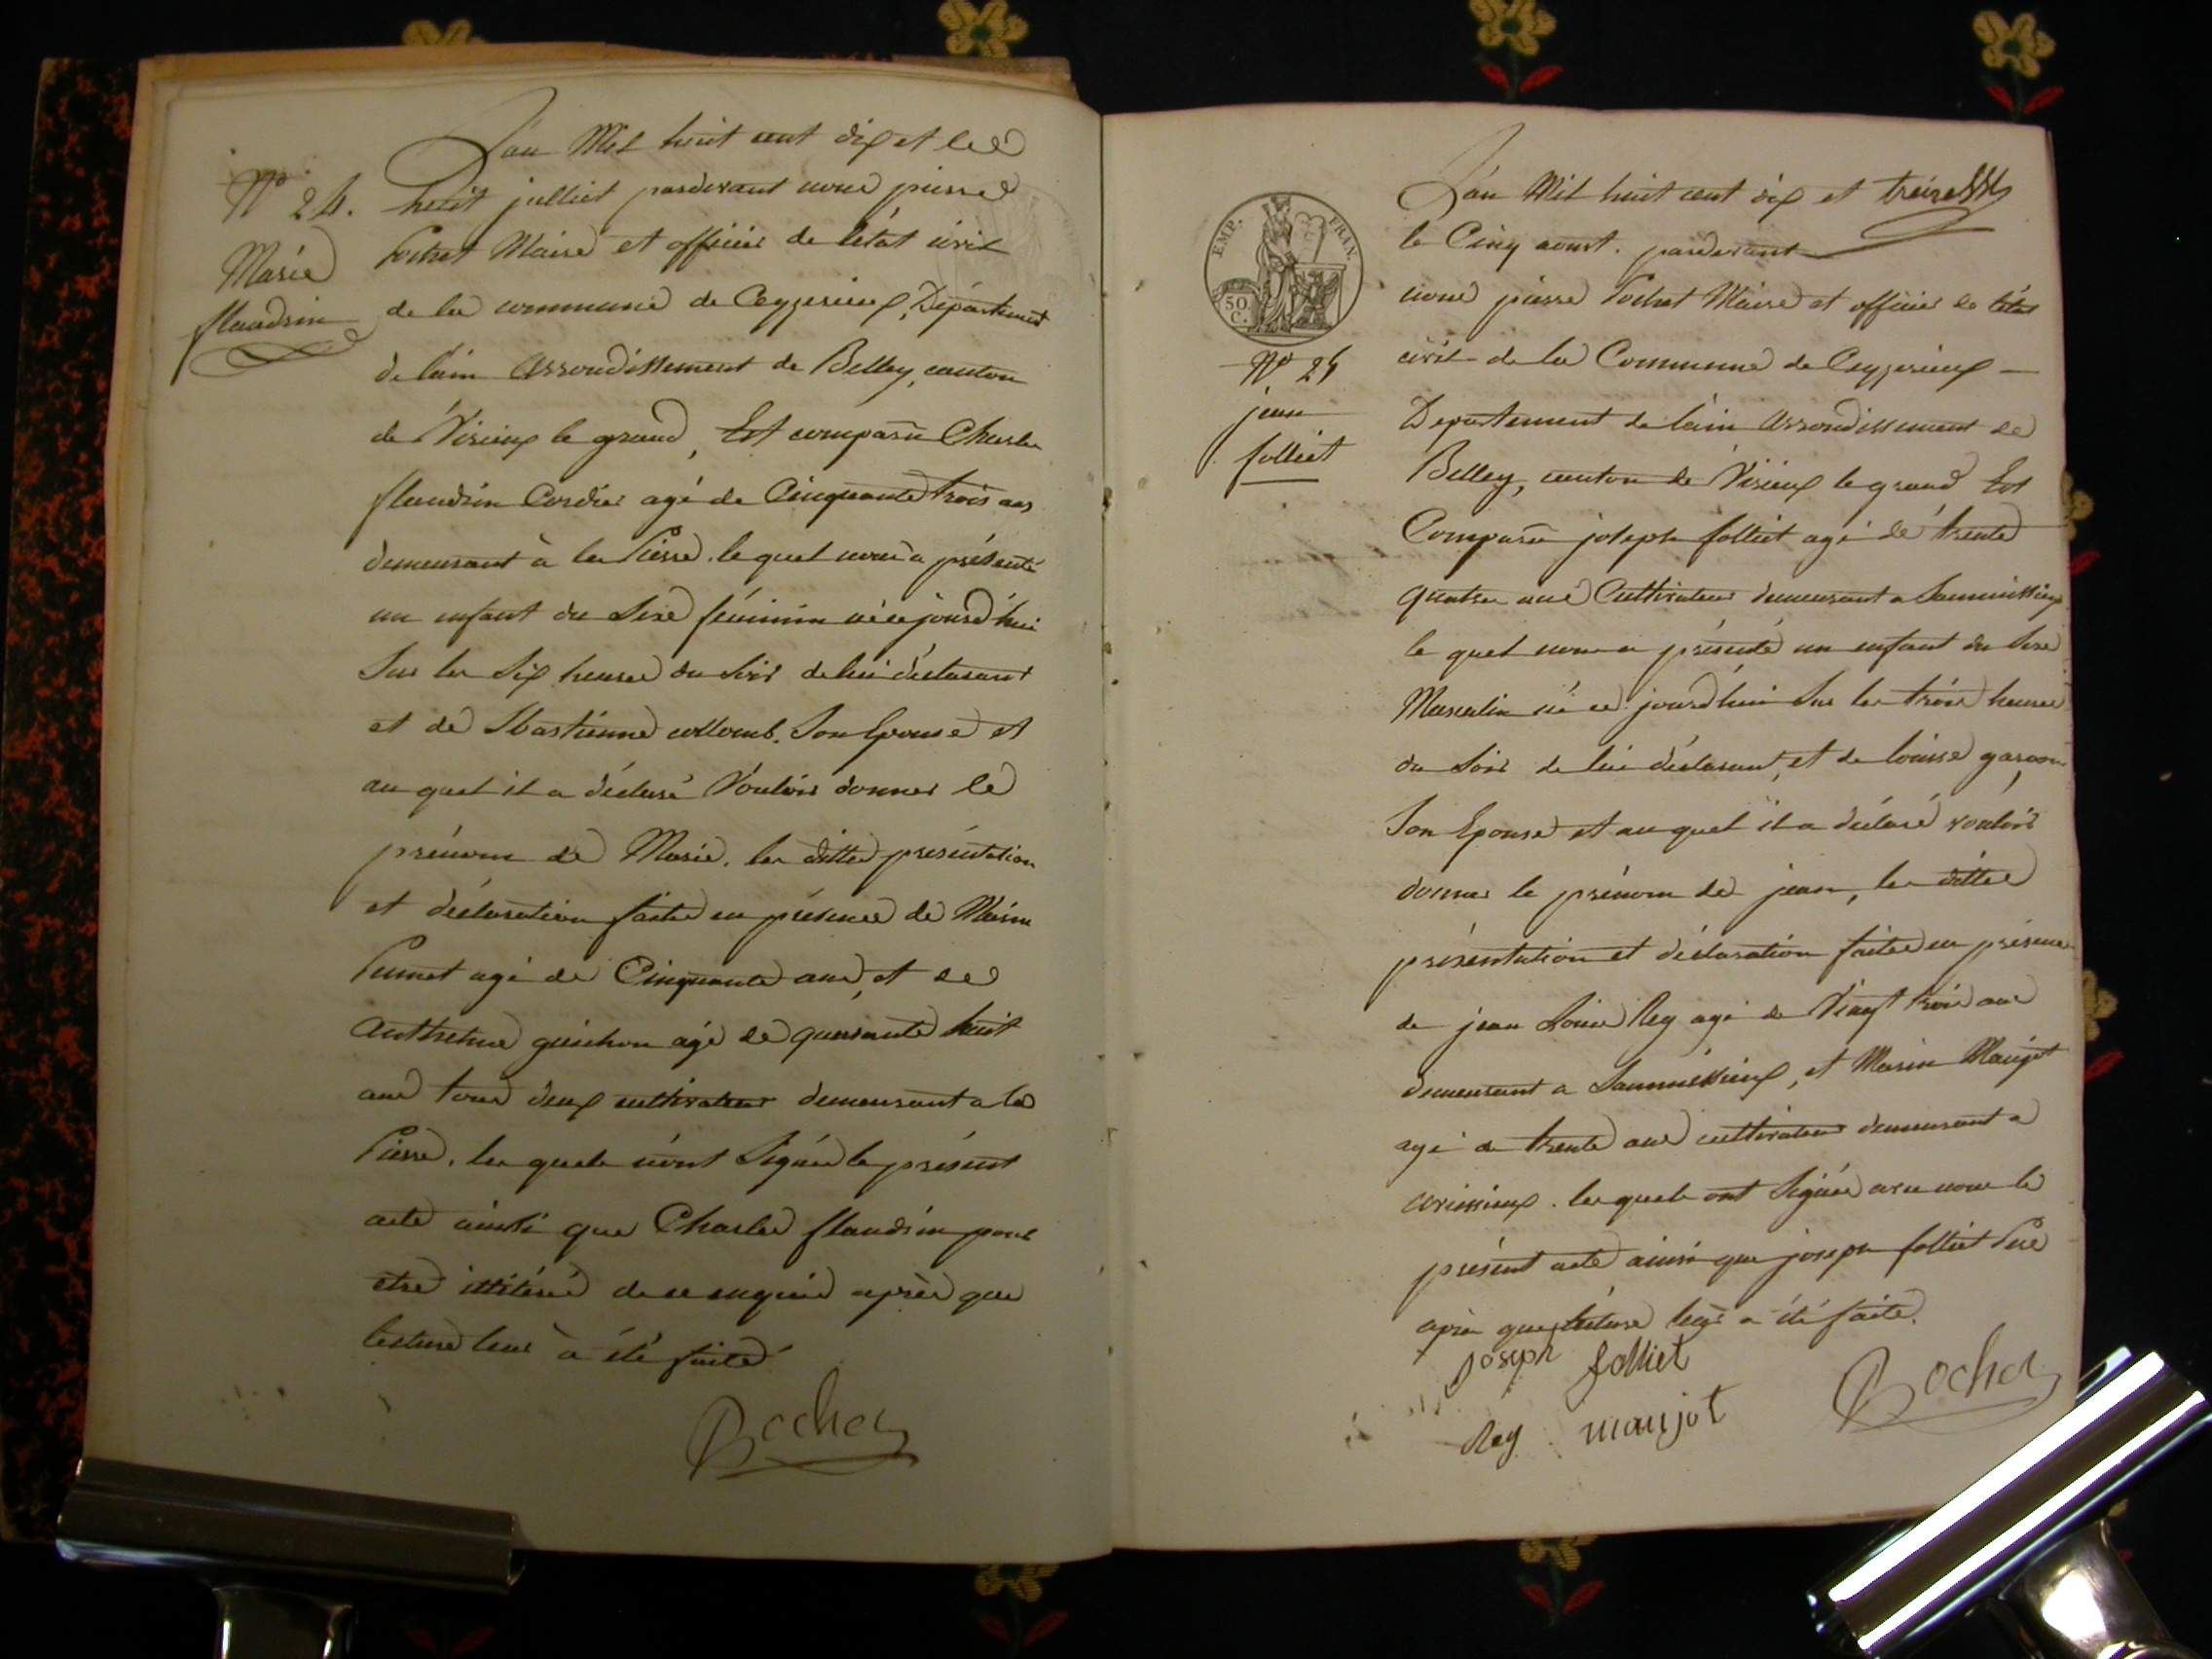 L'an Mil huit cent dix et le
huit julliet pardevant nous pierre
Pochet Maire et officier de l'état civil
de la commune de Ceyzerieux, Département
de l'ain Arrondissement de Belley, canton
de Virieux le grand, Est comparu Charles
flandrin Cordier agé de Cinquante trois ans
demeurant à la Pierre. le quel nous a présenté
un enfant du Sexe féminin né ce jourd'hui
Sur les Six heures du Soir de lui déclarant
et de Sbastienne collomb. Son Epouse et
au quel il a déclaré Vouloir donner le
prénom de Marie. la ditte présentation
et déclaration faite en présence de Marin
agé de Cinquante ans, et de
Anthelme guichon agé de quarante huit
ans tous deux cultivateur demeurant a la
Pierre. les quels n'ont Signés le présent
acte ainsi que Charles flandrin pour
etre illitéré de ce enquis après que
lecture leur à été faite
Pochet
Nº 24.
Marie
flandrin
L'an Mil huit cent dix et
le Cinq aoust. pardevant
nous pierre Pochet Maire et officier de l'état
civil de la Commune de Ceyzerieux
Departement de l'ain Arrondissement de
Belley, canton de Virieux le grand Est
Comparu joseph folliet agé de trente
quatre ans Cultivateur demeurant a
le quel nous a présenté un enfant du Sexe
Masculin né ce jourd'hui Sur les trois heures
du Soir de lui déclarant, et de louise
Son Epouse et au quel il a déclaré vouloir
donner le prénom de jean, la ditte
présentation et déclaration faite en présence
de jean Louis Rey agé de Vingt trois ans
demeurant a et Marin Maujot
agé de trente ans cultivateur demeurant a
les quels ont Signés avec nous le
présent acte ainsi que joseph folliet Pere
après que lecture leur a été faite.
Joseph folliet
Rey maujot
Pochet
EMP. FRAN.
50
C.
Nº 25
jean
folliet